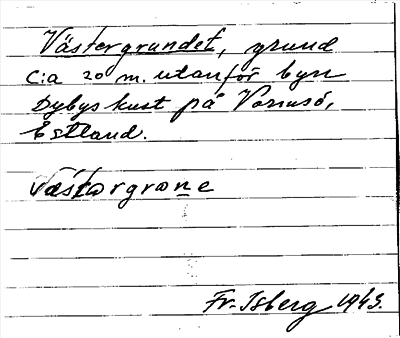 Västergrundet, grund
c:a 20 m. utanför byn
Dybys kust på Vormsö,
Estland.
västərgrɷne
Fr. Isberg 1943.